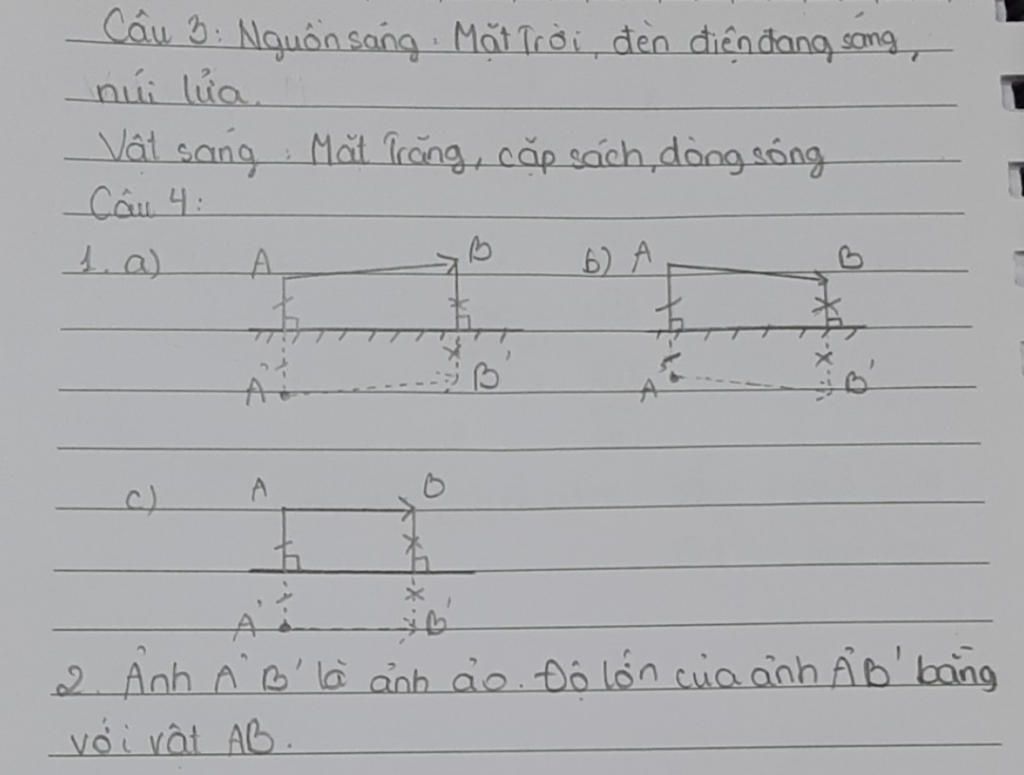 Câu 3: Nguồn sáng: Mặt Trời, đèn điện đang sáng,
núi lửa.
Vật sáng: Mặt Trăng, cặp sách, dòng sông
Câu 4:
1. a) A B b) A B
A' B' A' B'
c) A B
A' B'
2. Ảnh A'B' là ảnh ảo. Độ lớn của ảnh A'B' bằng
với vật AB.